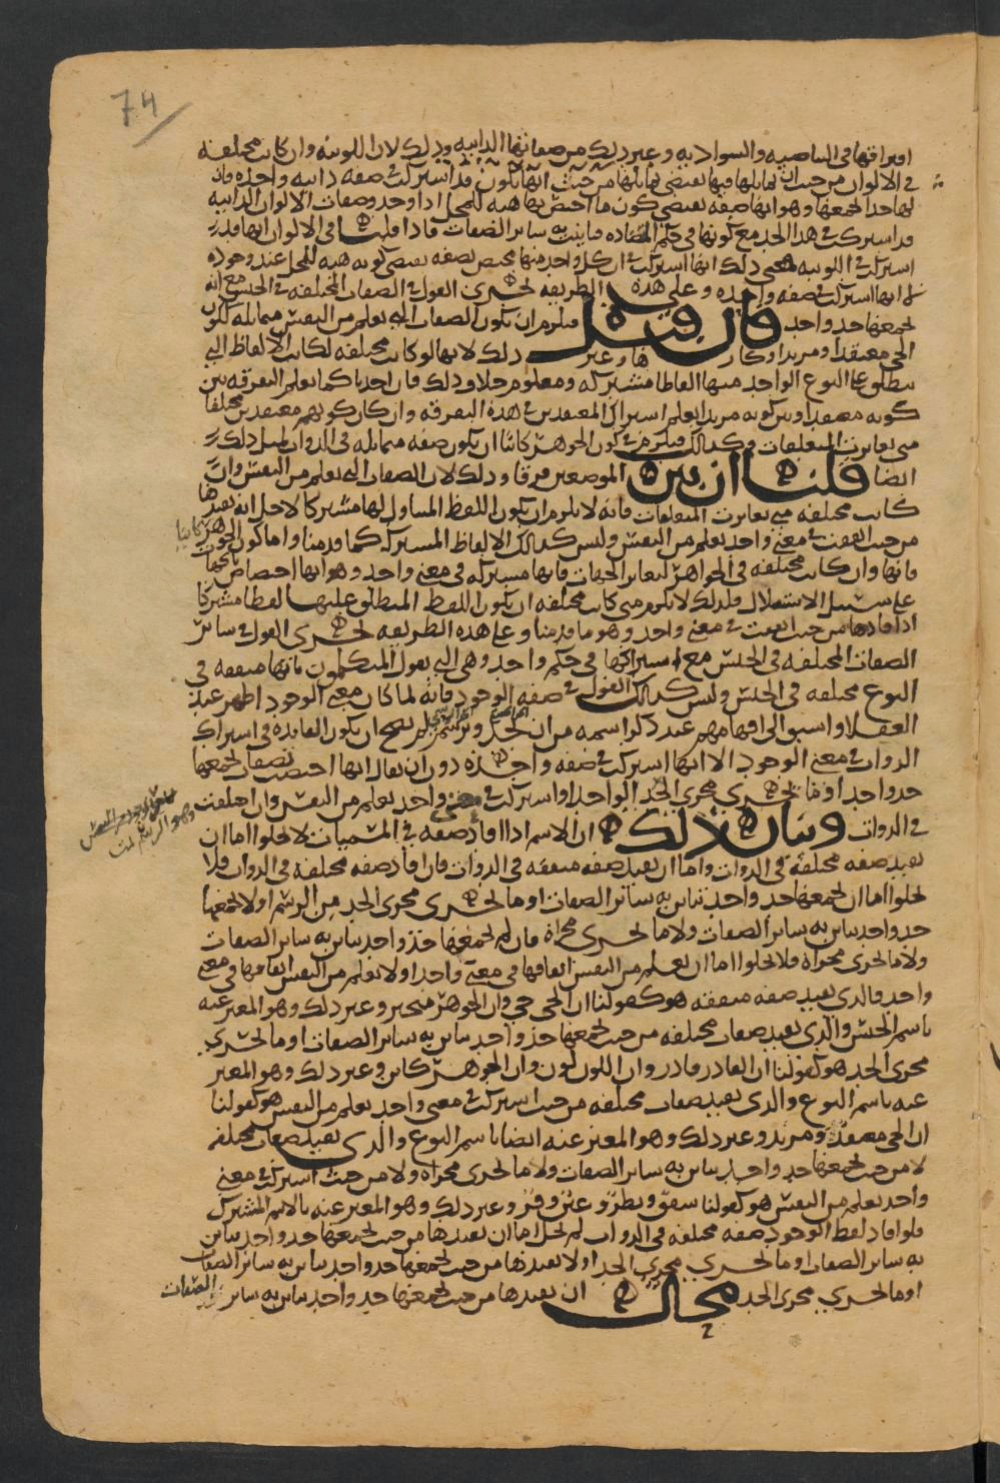 74
افتراقها في البياضيه والسواديه وغير ذلك من صفاتها الذاتيه وذلك لان اللونيه وان كانت مختلفه
في الالوان من حيث ان تماثلها فيها يقتضي تماثلها من حيث انها تكون قد اشتركت في صفه ذاتيه واحده فان
لها حدا يجمعها وهو انها صفه تقتضي كون ما اختص بها هيئه للمحل اذا وجد وصفات الالوان الذاتيه
قد اشتركت في هذا الحد مع كونها في حكم المتضاده فبانت به سائر الصفات فاذا قلنا في الالوان انها قد
اشتركت في اللونيه فمعنى ذلك انها اشتركت في ان كل واحد منها مختص بصفه تقتضي كونه هيئه للمحل عند وجوده
لا انها اشتركت في صفه واحده وعلى هذه الطريقه يجري القول في الصفات المختلفه في الجنس مع انه
يجمعها حد واحد فان قيل فيلزم ان تكون الصفات التي تعلم من النفس متماثله ككون
الحي معتقدا ومريدا وكارها وغير ذلك لانها لو كانت مختلفه لكانت الالفاظ التي
تنطلق على النوع الواحد منها الفاظا مشتركه ومعلوم خلاف ذلك فان احدنا كما يعلم التفرقه بين
كونه معتقدا وبين كونه مريدا يعلم اشتراك المعتقدين في هذه التفرقه وان كان كونهم معتقدين مختلفا
متى تغايرت المتعلقات وكذلك فيلزم في كون الجوهر كائنا ان يكون صفه متماثله في الذوات لمثل ذلك
ايضا قلنا ان بين الموضعين فرقا وذلك لان الصفات التي تعلم من النفس وان
كانت مختلفه متى تغايرت المتعلقات فانه لا يلزم ان يكون اللفظ المتناول لها مشتركا لاجل انه يفيدها
من حيث اتفقت في معنى واحد يعلم من النفس وليس كذلك الالفاظ المشتركه كما قدمنا واما كون الجوهر كائنا
فانها وان كانت مختلفه في الجواهر لتغاير الجهات فانها مشتركه في معنى واحد وهو انها اختصاص بالجهات
على سبيل الاستقلال فلذلك لا يلزم متى كانت مختلفه ان يكون اللفظ المنطلق عليها لفظا مشتركا
اذا افادها من حيث اتفقت في معنى واحد وهو ما قدمنا وعلى هذه الطريقه يجري القول في سائر
الصفات المختلفه في الجنس مع اشتراكها في حكم واحد وهي التي يقول المتكلمون بانها متفقه في
النوع مختلفه في الجنس وليس كذلك القول في صفه الوجود فانه لما كان معنى الوجود اظهر عند
العقلاء واسبق الى افهامهم عند ذكر اسمه من ان يحد لم يصح ان تكون الفائده في اشتراك
الذوات في معنى الوجود الا انها اشتركت في صفه واحده دون ان يقال انها اختصت بصفات يجمعها
حد واحد او ما يجري مجرى الحد الواحد او اشتركت في معنى واحد يعلم من النفس وان اختلفت
في الذوات وبيان ذلك ان الاسم اذا افاد صفه في المسميات لا يخلو اما ان
يفيد صفه مختلفه في الذوات واما ان يفيد صفه متفقه في الذوات فان افاد صفه مختلفه في الذوات فلا
يخلو اما ان يجمعها حد واحد تباين به سائر الصفات او ما يجري مجرى الحد من الرسم او لا يجمعها
حد واحد تباين به سائر الصفات ولا ما يجري مجراه فان لم يجمعها حد واحد تباين به سائر الصفات
ولا ما يجري مجراه فلا يخلو اما ان يعلم من النفس اتفاقها في معنى واحد او لا يعلم من النفس اتفاقها في معنى
واحد فالذي يفيد صفه متفقه هو كقولنا ان الحي حي وان الجوهر متحيز وغير ذلك وهو المعبر عنه
باسم الجنس والذي يفيد صفات مختلفه من حيث يجمعها حد واحد تباين به سائر الصفات او ما يجري
مجرى الحد هو كقولنا ان القادر قادر وان اللون لون وان الجوهر كائن وغير ذلك وهو المعبر
عنه باسم النوع والذي يفيد صفات مختلفه من حيث اشتركت في معنى واحد يعلم من النفس هو كقولنا
ان الحي معتقد ومريد وغير ذلك وهو المعبر عنه ايضا باسم النوع والذي يفيد صفات مختلفه
لا من حيث يجمعها حد واحد تباين به سائر الصفات ولا ما يجري مجراه ولا من حيث اشتركت في معنى
واحد يعلم من النفس هو كقولنا شفق ونظر وعين وقرء وغير ذلك وهو المعبر عنه بالاسم المشترك
فلو افاد لفظ الوجود صفه مختلفه في الذوات لم يخل اما ان يفيدها من حيث يجمعها حد واحد تباين
به سائر الصفات او ما يجري مجرى الحد او لا يفيدها من حيث يجمعها حد واحد تباين به سائر الصفات
او ما يجري مجرى الحد محال ان يفيدها من حيث يجمعها حد واحد تباين به سائر الصفات